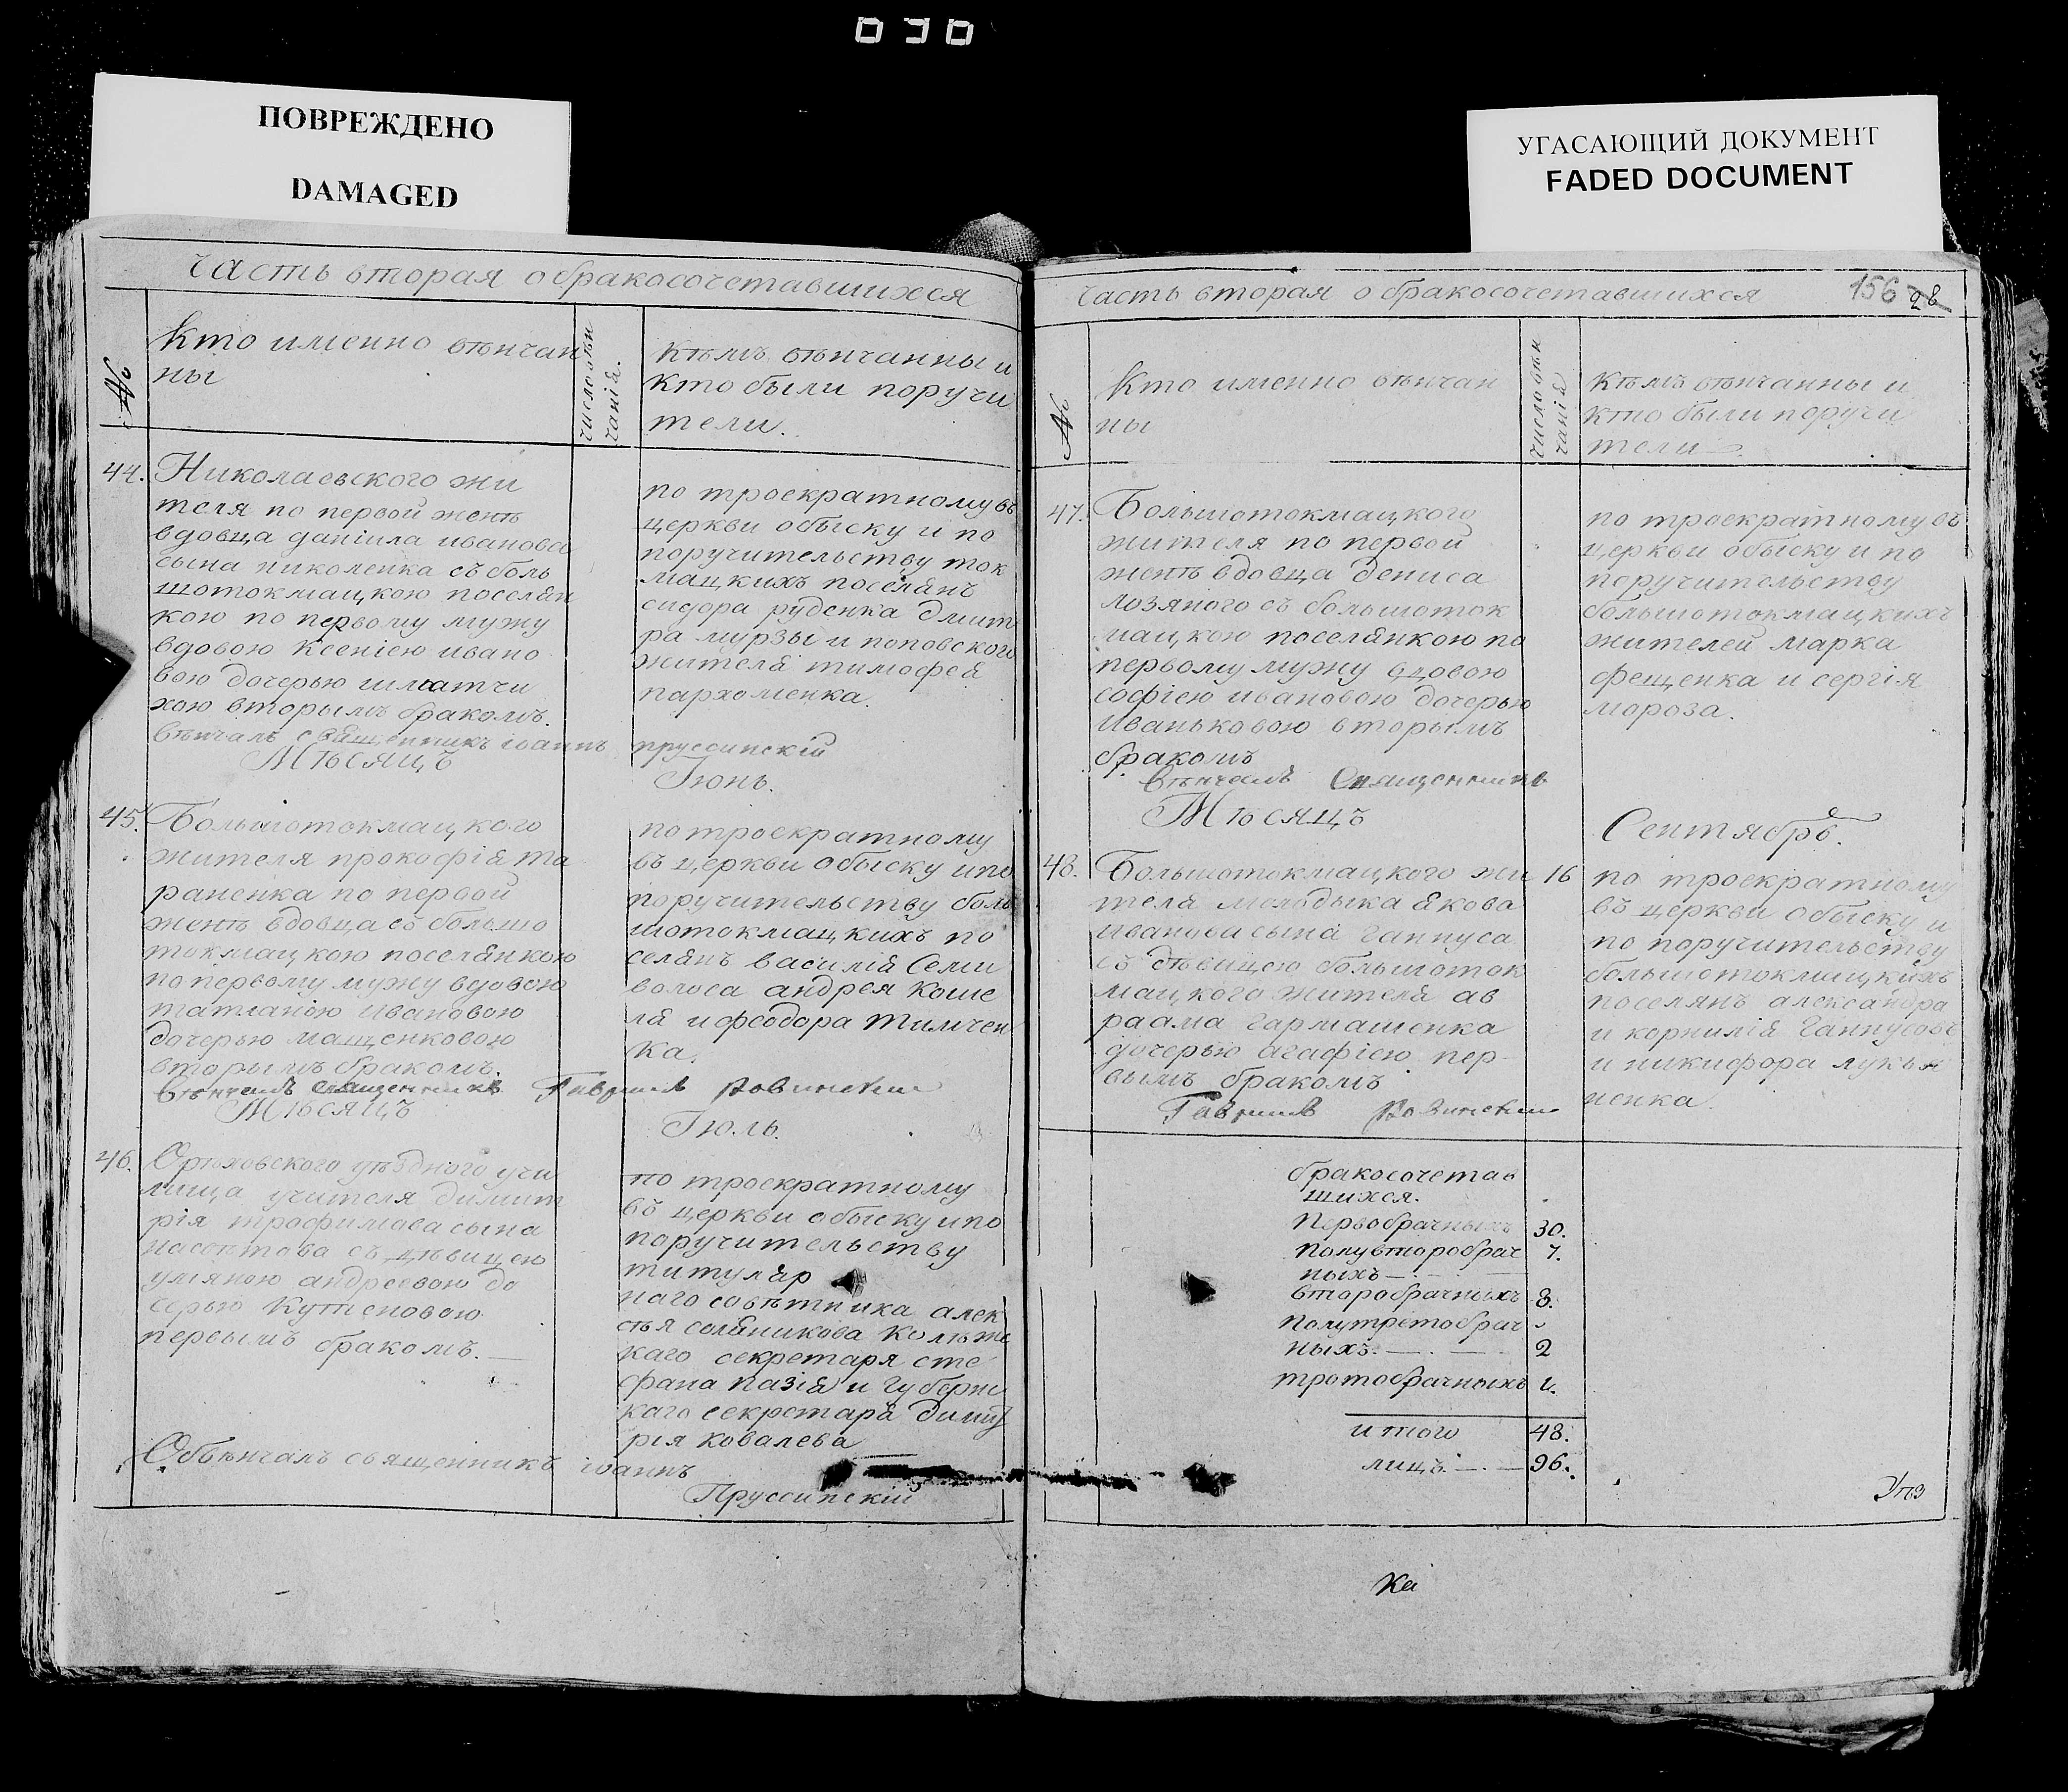 030
ПОВРЕЖДЕНО
DAMAGED
УГАСАЮЩИЙ ДОКУМЕНТ
FADED DOCUMENT
часть вторая о бракосочетавшихся
№
Кто именно вѣнчан
ны
число вѣн
чанія.
Кѣмъ вѣнчанны и
кто были поручи
тели.
44.
Николаевского жи
теля по первой женѣ
вдовца даніила иванова
сына николенка съ боль
шотокмацкою поселян
кою по первому мужу
вдовою Ксеніею ивано
вою дочерью шматчи
хою вторымъ бракомъ.
вѣнчалъ священникъ іоаннъ пруссинскій
по троекратному въ
церкви обыску и по
поручительству ток
мацкихъ поселянъ
сидора руденка дмит
ра мурзы и поповского
жителя тимофея
пархоменка.
Мѣсяцъ Іюнь.
45.
Большотокмацкого
жителя прокофія та
раненка по первой
женѣ вдовца съ большо
токмацкою поселянкою
по первому мужу вдовою
татіаною ивановою
дочерью мащенковою
вторымъ бракомъ.
вѣнчалъ священникъ Гавриилъ Ровинскій
по троекратному
въ церкви обыску и по
поручительству боль
шотокмацкихъ по
селянъ василія Семи
волоса андрея Коше
ля и феодора тимчен
ка.
Мѣсяцъ Іюль.
46.
Орѣховского уѣздного учи
лища учителя димит
рія трофимова сына
съ дѣвицею
уліяною андреевою до
черью
первымъ бракомъ.
по троекратному
въ церкви обыску и по
поручительству
титуляр
наго совѣтника алек
сѣя солянникова Колѣж
каго секретаря сте
фана пазія и губерн
каго секретаря димит
рія Ковалева
Обвѣнчалъ священникъ іоаннъ
Пруссинскій
часть вторая о бракосочетавшихся
156 28
№
Кто именно вѣнчан
ны
число вѣн
чанія
Кѣмъ вѣнчанны и
кто были поручи
тели
47.
Большотокмацкого
жителя по первой
женѣ вдовца дениса
лозяного съ большоток
мацкою поселянкою по
первому мужу вдовою
софіею ивановою дочерью
иваньковою вторымъ
бракомъ
вѣнчалъ Священникъ
по троекратному въ
церкви обыску и по
поручительству
большотокмацкихъ
жителей марка
фещенка и сергія
мороза.
Мѣсяцъ Сентябрь.
48.
Большотокмацкого жи
теля молодыка якова
иванова сына ганнуса
съ дѣвицею большоток
мацкого жителя ав
раама гармашенка
дочерью агафіею пер
вымъ бракомъ
Гавриилъ Ровинскій
16
по троекратному
въ церкви обыску и
по поручительству
большотокмацкихъ
поселянъ александра
и корнилія ганнусовъ
и никифора лукья
ненка.
бракосочетав
шихся.
первобрачныхъ 30.
полувторобрач 7.
ныхъ
второбрачныхъ 8.
полутретобрач
ныхъ. 2
третобрачныхъ 1.
итого 48.
лицъ. 96.
Ка